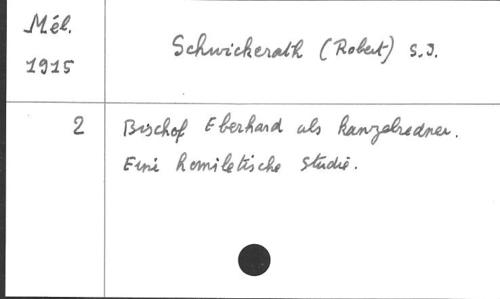 Mél.
1915
Schwickerath (Robert) S.J.
2
Bischof Eberhard als Kanzelredner.
Eine homiletische Studie.